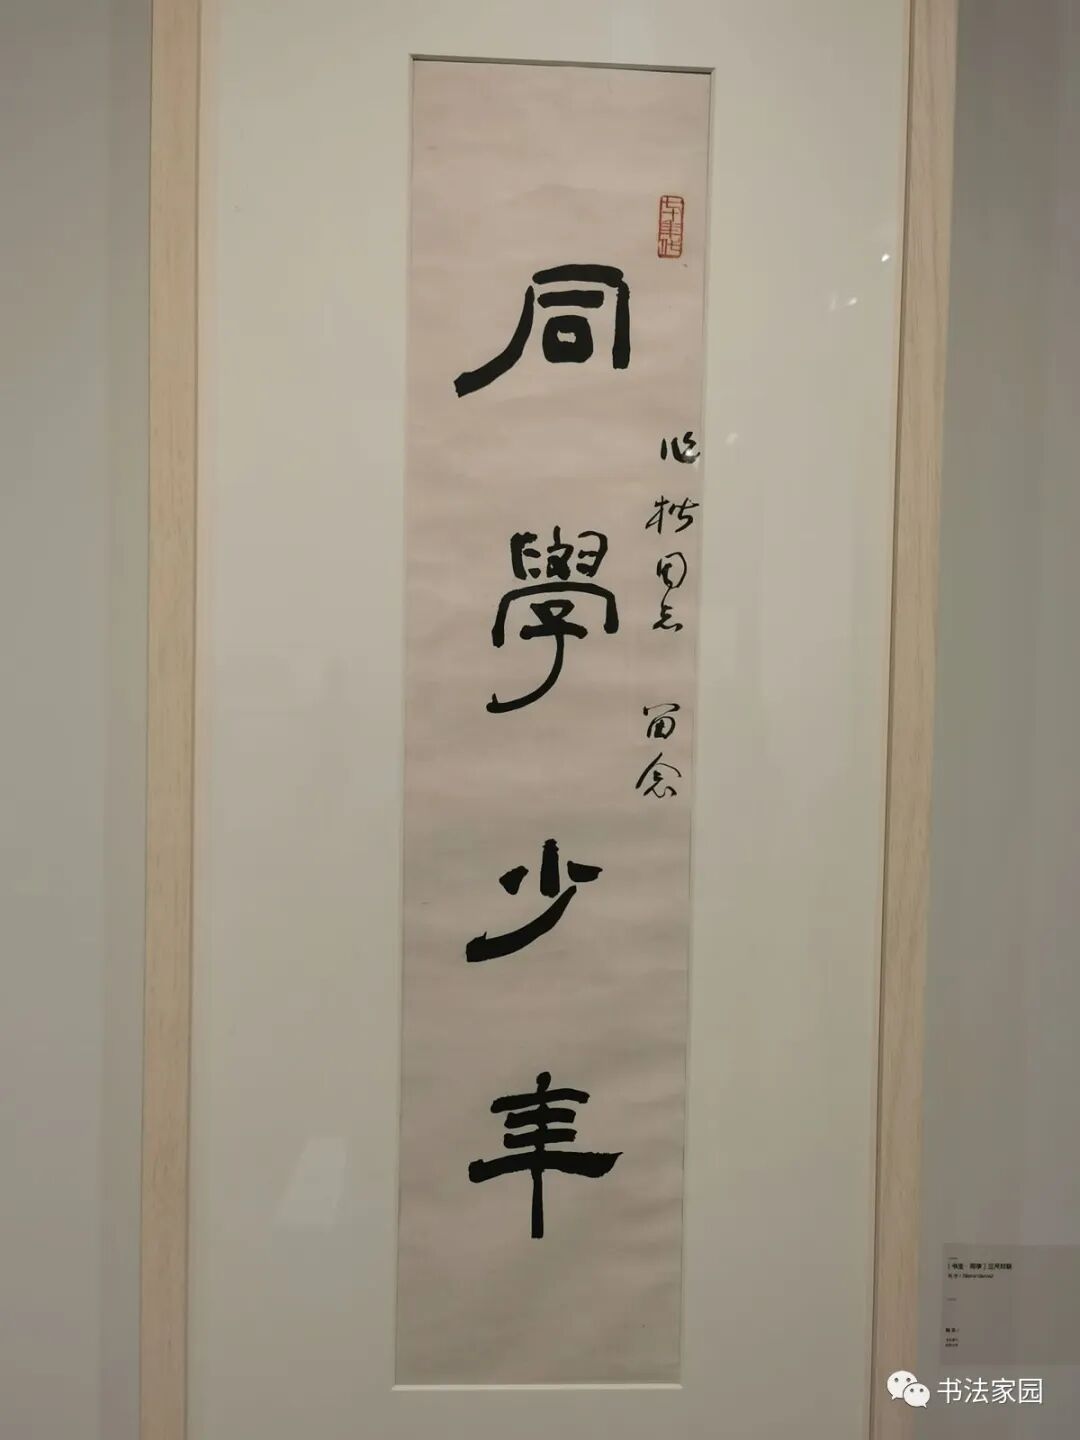 同學少年
心楷同志 留念
书法家园